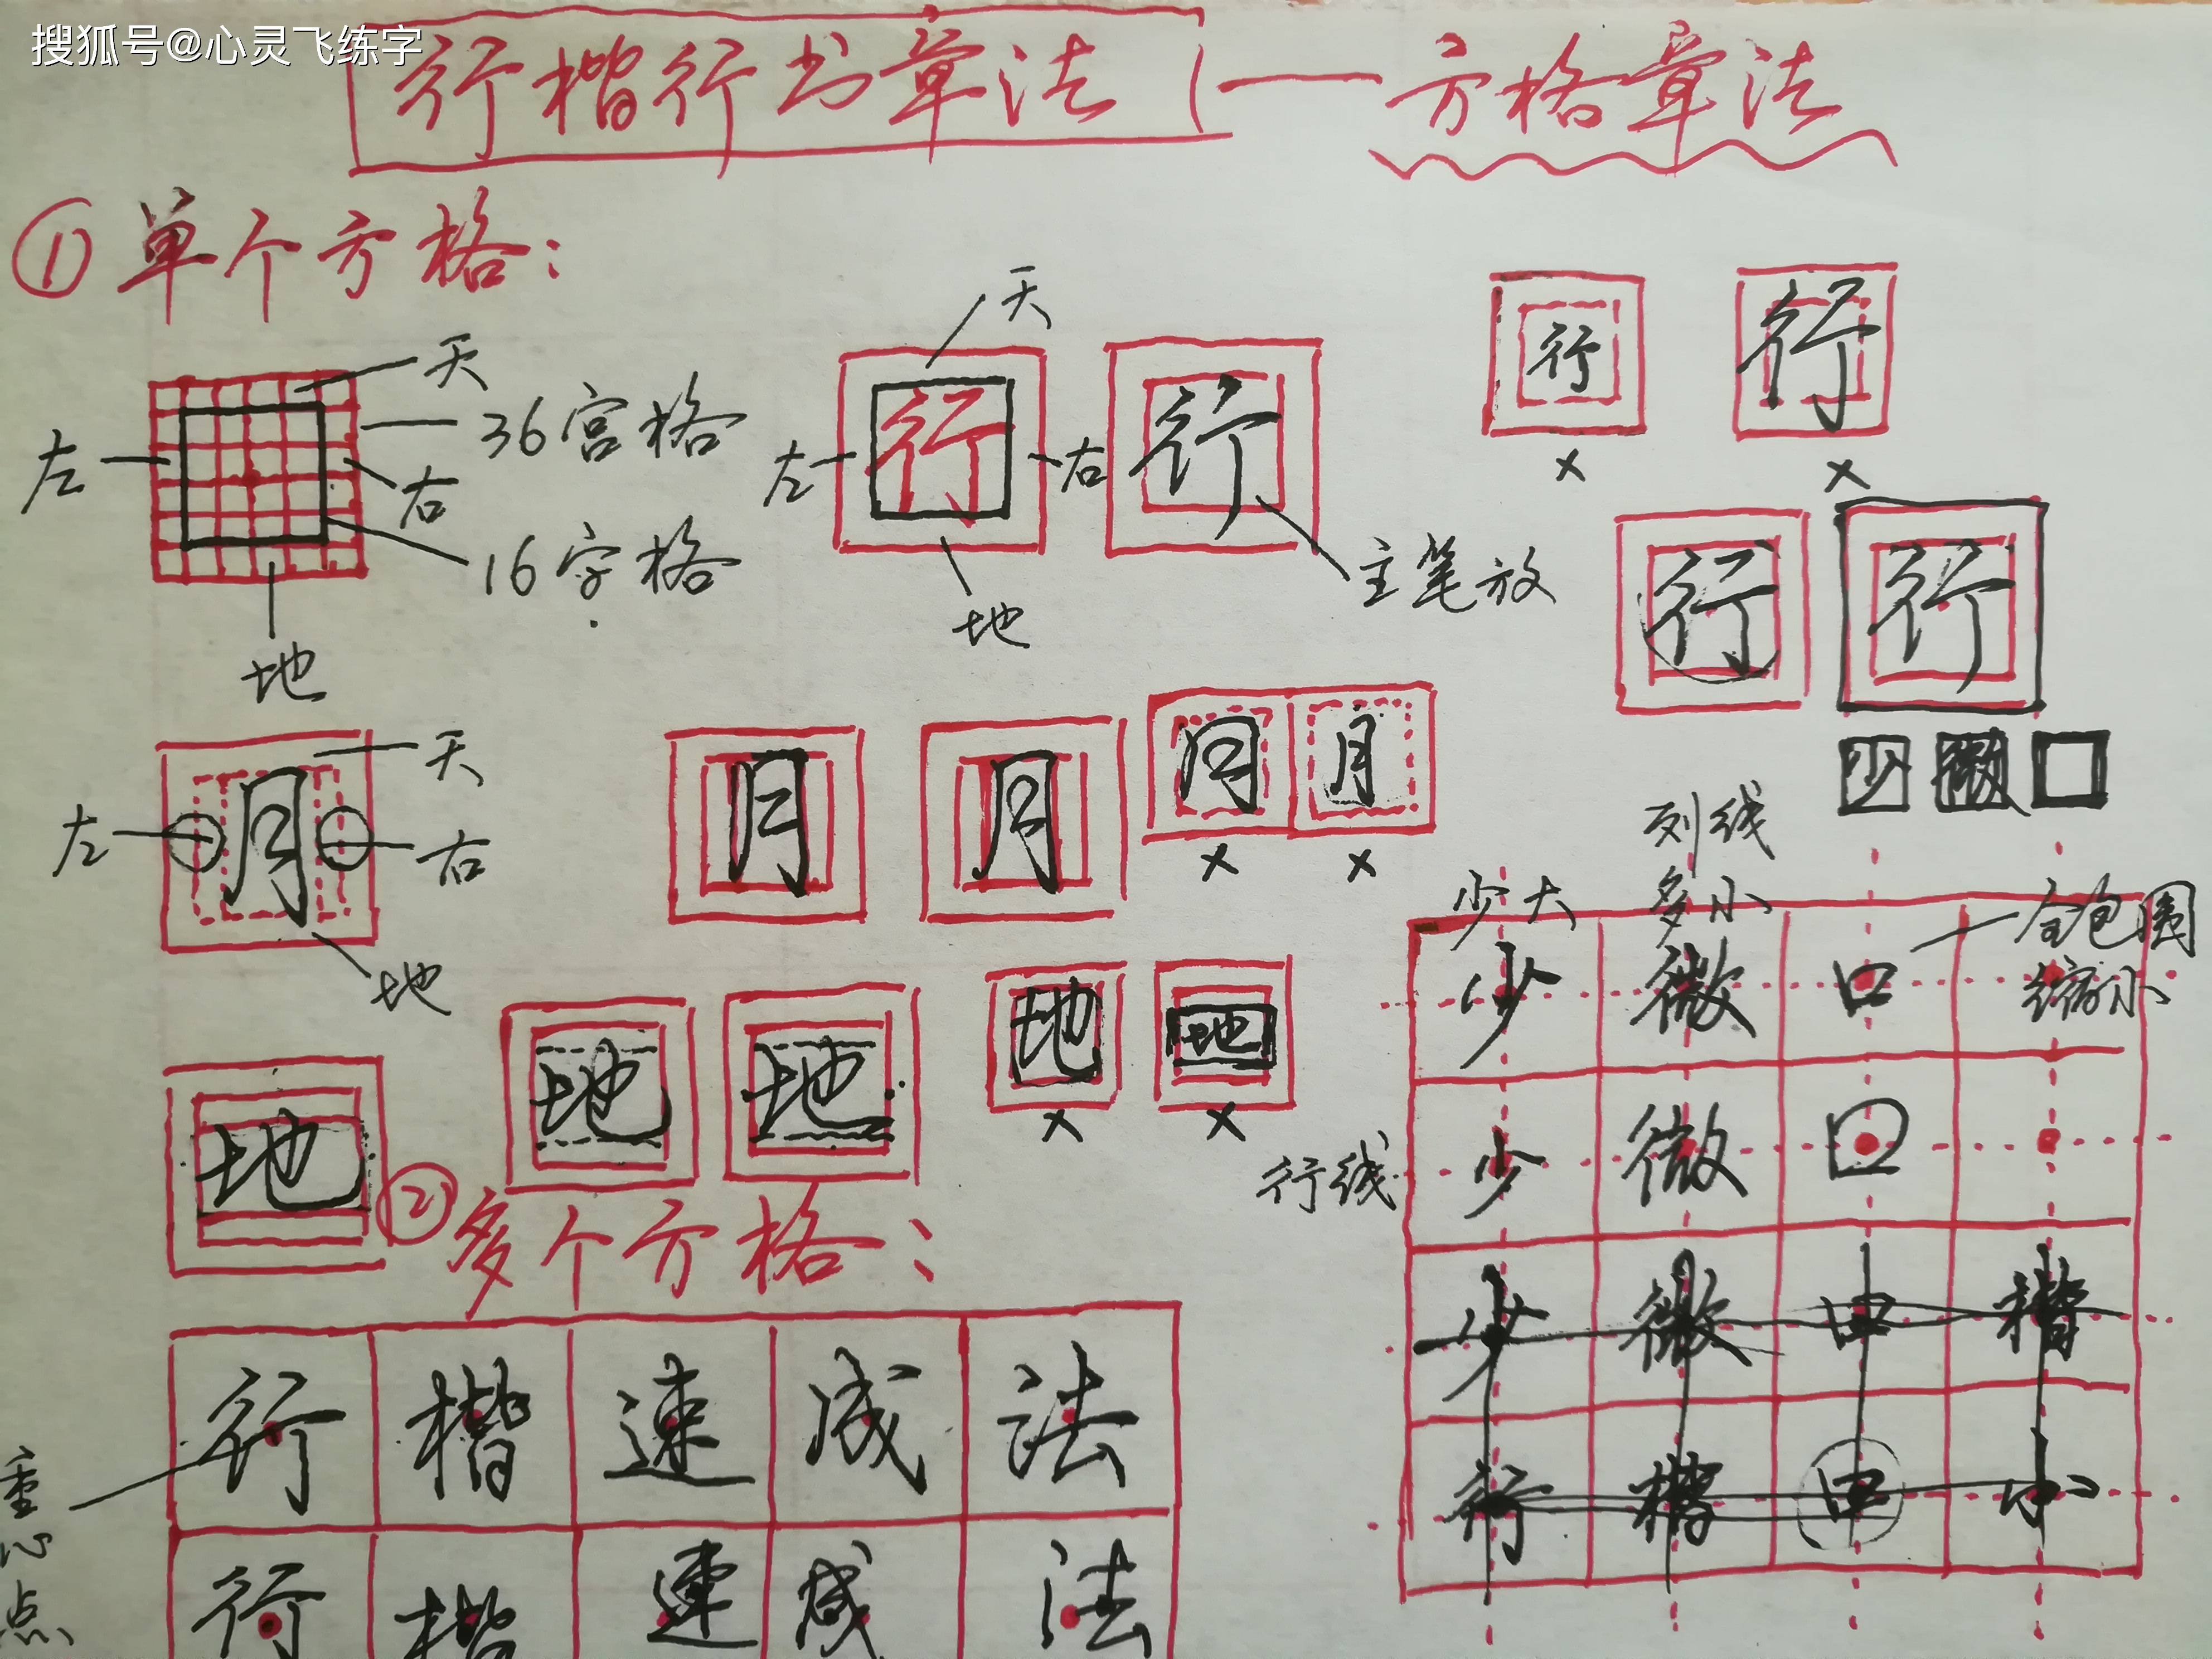 搜狐号@心灵飞练字
行楷行书章法——方格章法
①单个方格：
天
36宫格
左
右
16字格
地
天
左 行 右 行
主笔放
地
行 行
× ×
行 行
天
左 月 右
地
月 月 月 月
× ×
少 微 口
地 地 地 地 地
× ×
②多个方格：
行 楷 速 成 法
重心点
行 楷 速 成 法
列线
少大 多小 全包围
缩小
少 微 口
行线
少 微 口
少 微 中 楷
行 楷 中 小